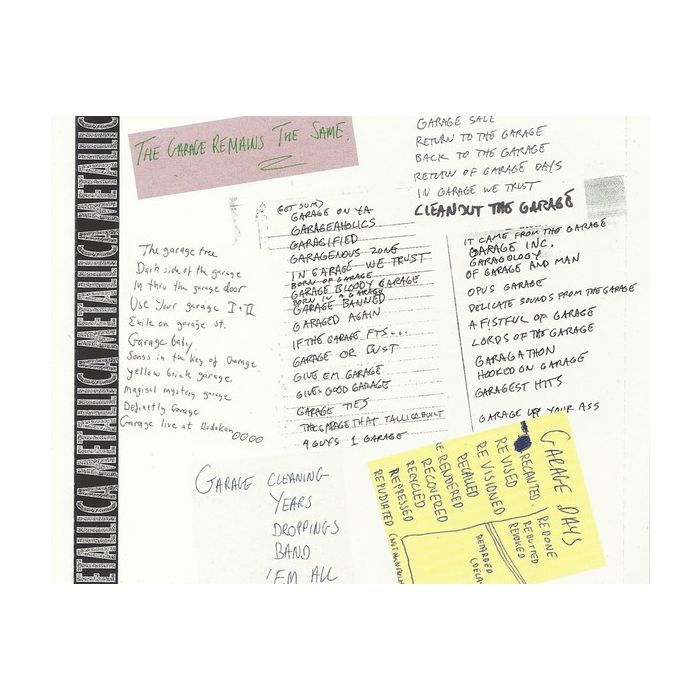 METALLICA METALLICA METALLICA METALLICA
THE GARAGE REMAINS THE SAME.
GARAGE SALE
RETURN TO THE GARAGE
BACK TO THE GARAGE
RETURN OF GARAGE DAYS
IN GARAGE WE TRUST
CLEANOUT THE GARAGE
The garage tree
Dark side of the garage
In thru the garage door
Use Your garage I+II
Exile on garage st.
Garage baby
Songs in the key of Garage
yellow brick garage
Magical mystery garage
Definetly Garage
Garage live at Budokan
GARAGE ON YA
GARAGEAHOLICS
GARAGIFIED
GARAGENOUS ZONE
IN GARAGE WE TRUST
BORN OF GARAGE
GARAGE BLOODY GARAGE
BORN IN A GARAGE
GARAGE BANNED
GARAGED AGAIN
IF THE GARAGE FTS...
GARAGE OR BUST
GIVE EM GARAGE
GIVE GOOD GARAGE
GARAGE TIES
THE GARAGE THAT TALLICA BUILT
4 GUYS 1 GARAGE
IT CAME FROM THE GARAGE
GARAGE INC.
GARAGOLOGY
OF GARAGE AND MAN
OPUS GARAGE
DELICATE SOUNDS FROM THE GARAGE
A FISTFUL OF GARAGE
LORDS OF THE GARAGE
GARAGATHON
HOOKED ON GARAGE
GARAGEST HITS
GARAGE UP YOUR ASS
GARAGE CLEANING
YEARS
DROPPINGS
BAND
'EM ALL
GARAGE DAYS
REDONE
REBUTTED
REVOKED
RECANTED
REVISED
RE VISIONED
REFAILED
RE-RENDERED
RECOVERED
RECYCLED
REPRESSED
REPUDIATED
RETARDED